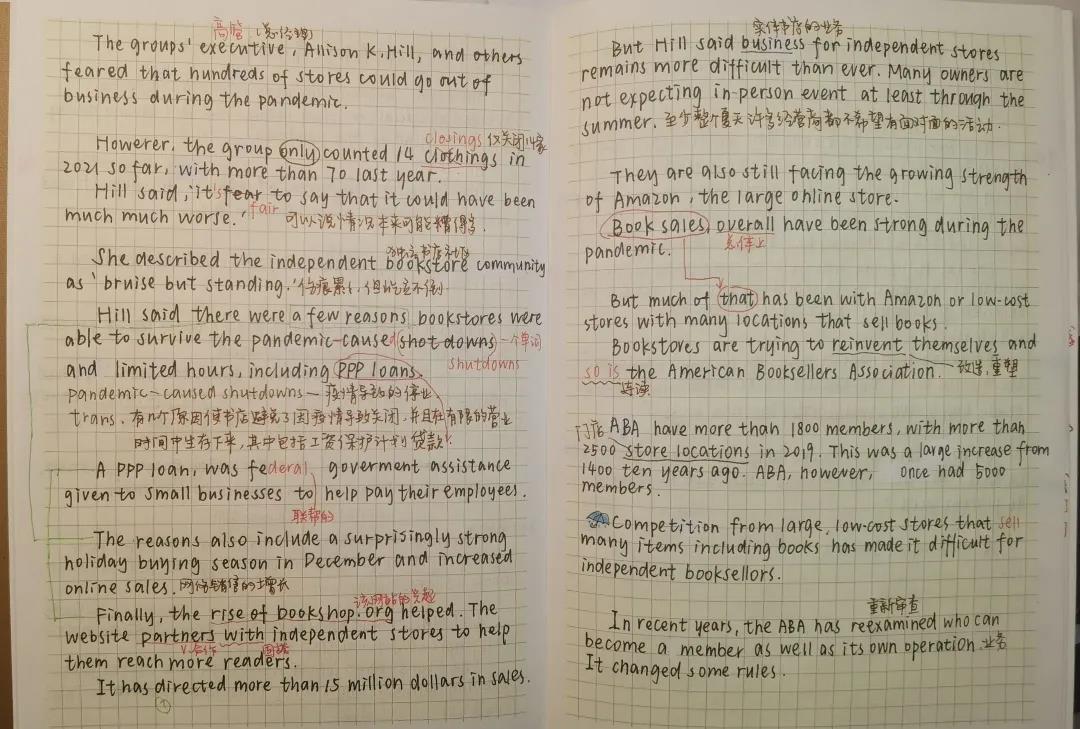 高管(总经理)
The groups' executive, Allison K. Hill, and others
feared that hundreds of stores could go out of
business during the pandemic.
closings 仅关闭14家
However, the group only counted 14 clothings in
2021 so far, with more than 70 last year.
Hill said, 'it's fear to say that it could have been
fair
much much worse.' 可以说情况本来可能糟得多.
独立书店社区
She described the independent bookstore community
as 'bruise but standing.' 伤痕累累,但屹立不倒.
Hill said there were a few reasons bookstores were
able to survive the pandemic-caused (shot downs) 一个单词
shutdowns
and limited hours, including PPP loans.
pandemic-caused shutdowns — 疫情导致的停业
trans. 有几个原因使书店避免了因疫情导致关闭,并且在有限的营业
时间中生存下来,其中包括工资保护计划贷款.
A PPP loan, was federal goverment assistance
given to small businesses to help pay their employees.
联邦的
The reasons also include a surprisingly strong
holiday buying season in December and increased
online sales. 网络销售的增长
该网站的兴起
Finally, the rise of bookshop.org helped. The
website partners with independent stores to help
v.合作
them reach more readers.
It has directed more than 15 million dollars in sales.
①
实体书店的业务
But Hill said business for independent stores
remains more difficult than ever. Many owners are
not expecting in-person event at least through the
summer. 至少整个夏天许多经营商都不希望有面对面的活动.
They are also still facing the growing strength
of Amazon, the large online store.
Book sales, overall have been strong during the
总体上
pandemic.
But much of that has been with Amazon or low-cost
stores with many locations that sell books.
Bookstores are trying to reinvent themselves and
so is the American Booksellers Association. 改造,重塑
连读
门店 ABA have more than 1800 members, with more than
2500 store locations in 2019. This was a large increase from
1400 ten years ago. ABA, however, once had 5000
members.
Competition from large, low-cost stores that sell
many items including books has made it difficult for
independent booksellors.
重新审查
In recent years, the ABA has reexamined who can
become a member as well as its own operation. 业务
It changed some rules.